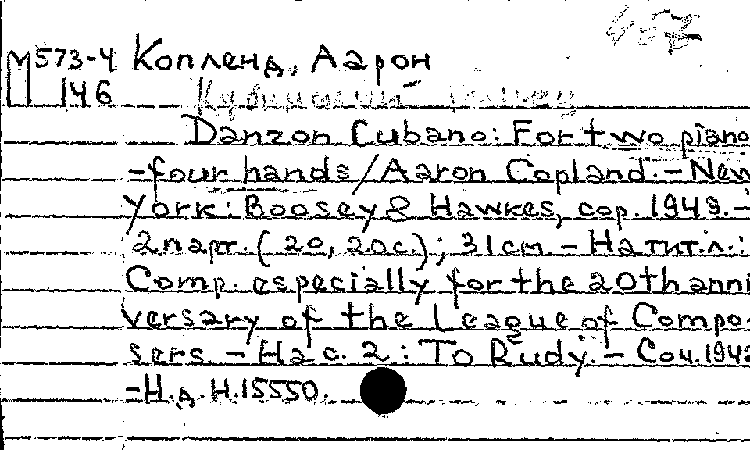 М573-4 Копленд, Аарон
146 Кубинский танец
Danzon Cubano: For two piano
-four hands/Aaron Copland.-New
York: Boosey & Hawkes, cop. 1949.-
2 парт. (20, 20с.); 31см.-На тит.л.:
Comp. especially for the 20th anni
versary of the League of Compo-
sers.-На с. 2: To Rudy.-Соч.1942
-Н.д. Н.15550.